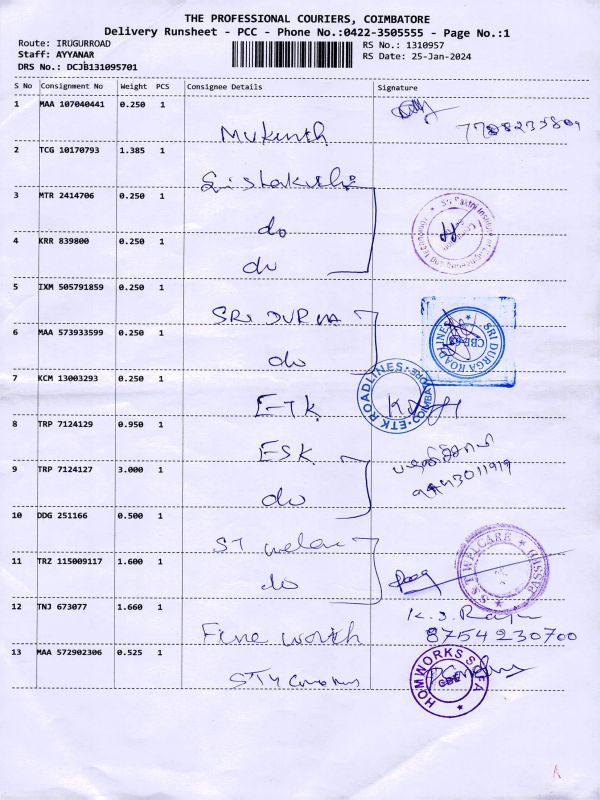 THE PROFESSIONAL COURIERS, COIMBATORE
Delivery Runsheet - PCC - Phone No.:0422-3505555 - Page No.:1
Route: IRUGURROAD
Staff: AYYANAR
DRS No.: DCJB131095701
RS No.: 1310957
RS Date: 25-Jan-2024
S No Consignment No Weight PCS Consignee Details Signature
1 MAA 107040441 0.250 1
2 TCG 10170793 1.385 1
3 MTR 2414706 0.250 1 do
4 KRR 839800 0.250 1 do
5 IXM 505791859 0.250 1 SRI DURGA
SRI DURGA ROADLINES CBE
6 MAA 573933599 0.250 1 do
7 KCM 13003293 0.250 1 ETK
ETK ROADLINES COIMBATORE
8 TRP 7124129 0.950 1 ESK
9 TRP 7124127 3.000 1 do
10 DDG 251166 0.500 1
11 TRZ 115009117 1.600 1 do
S S T WELCARE
12 TNJ 673077 1.660 1 Fine worth
8754230700
13 MAA 572902306 0.525 1
HOMWORKS SOFA CBE